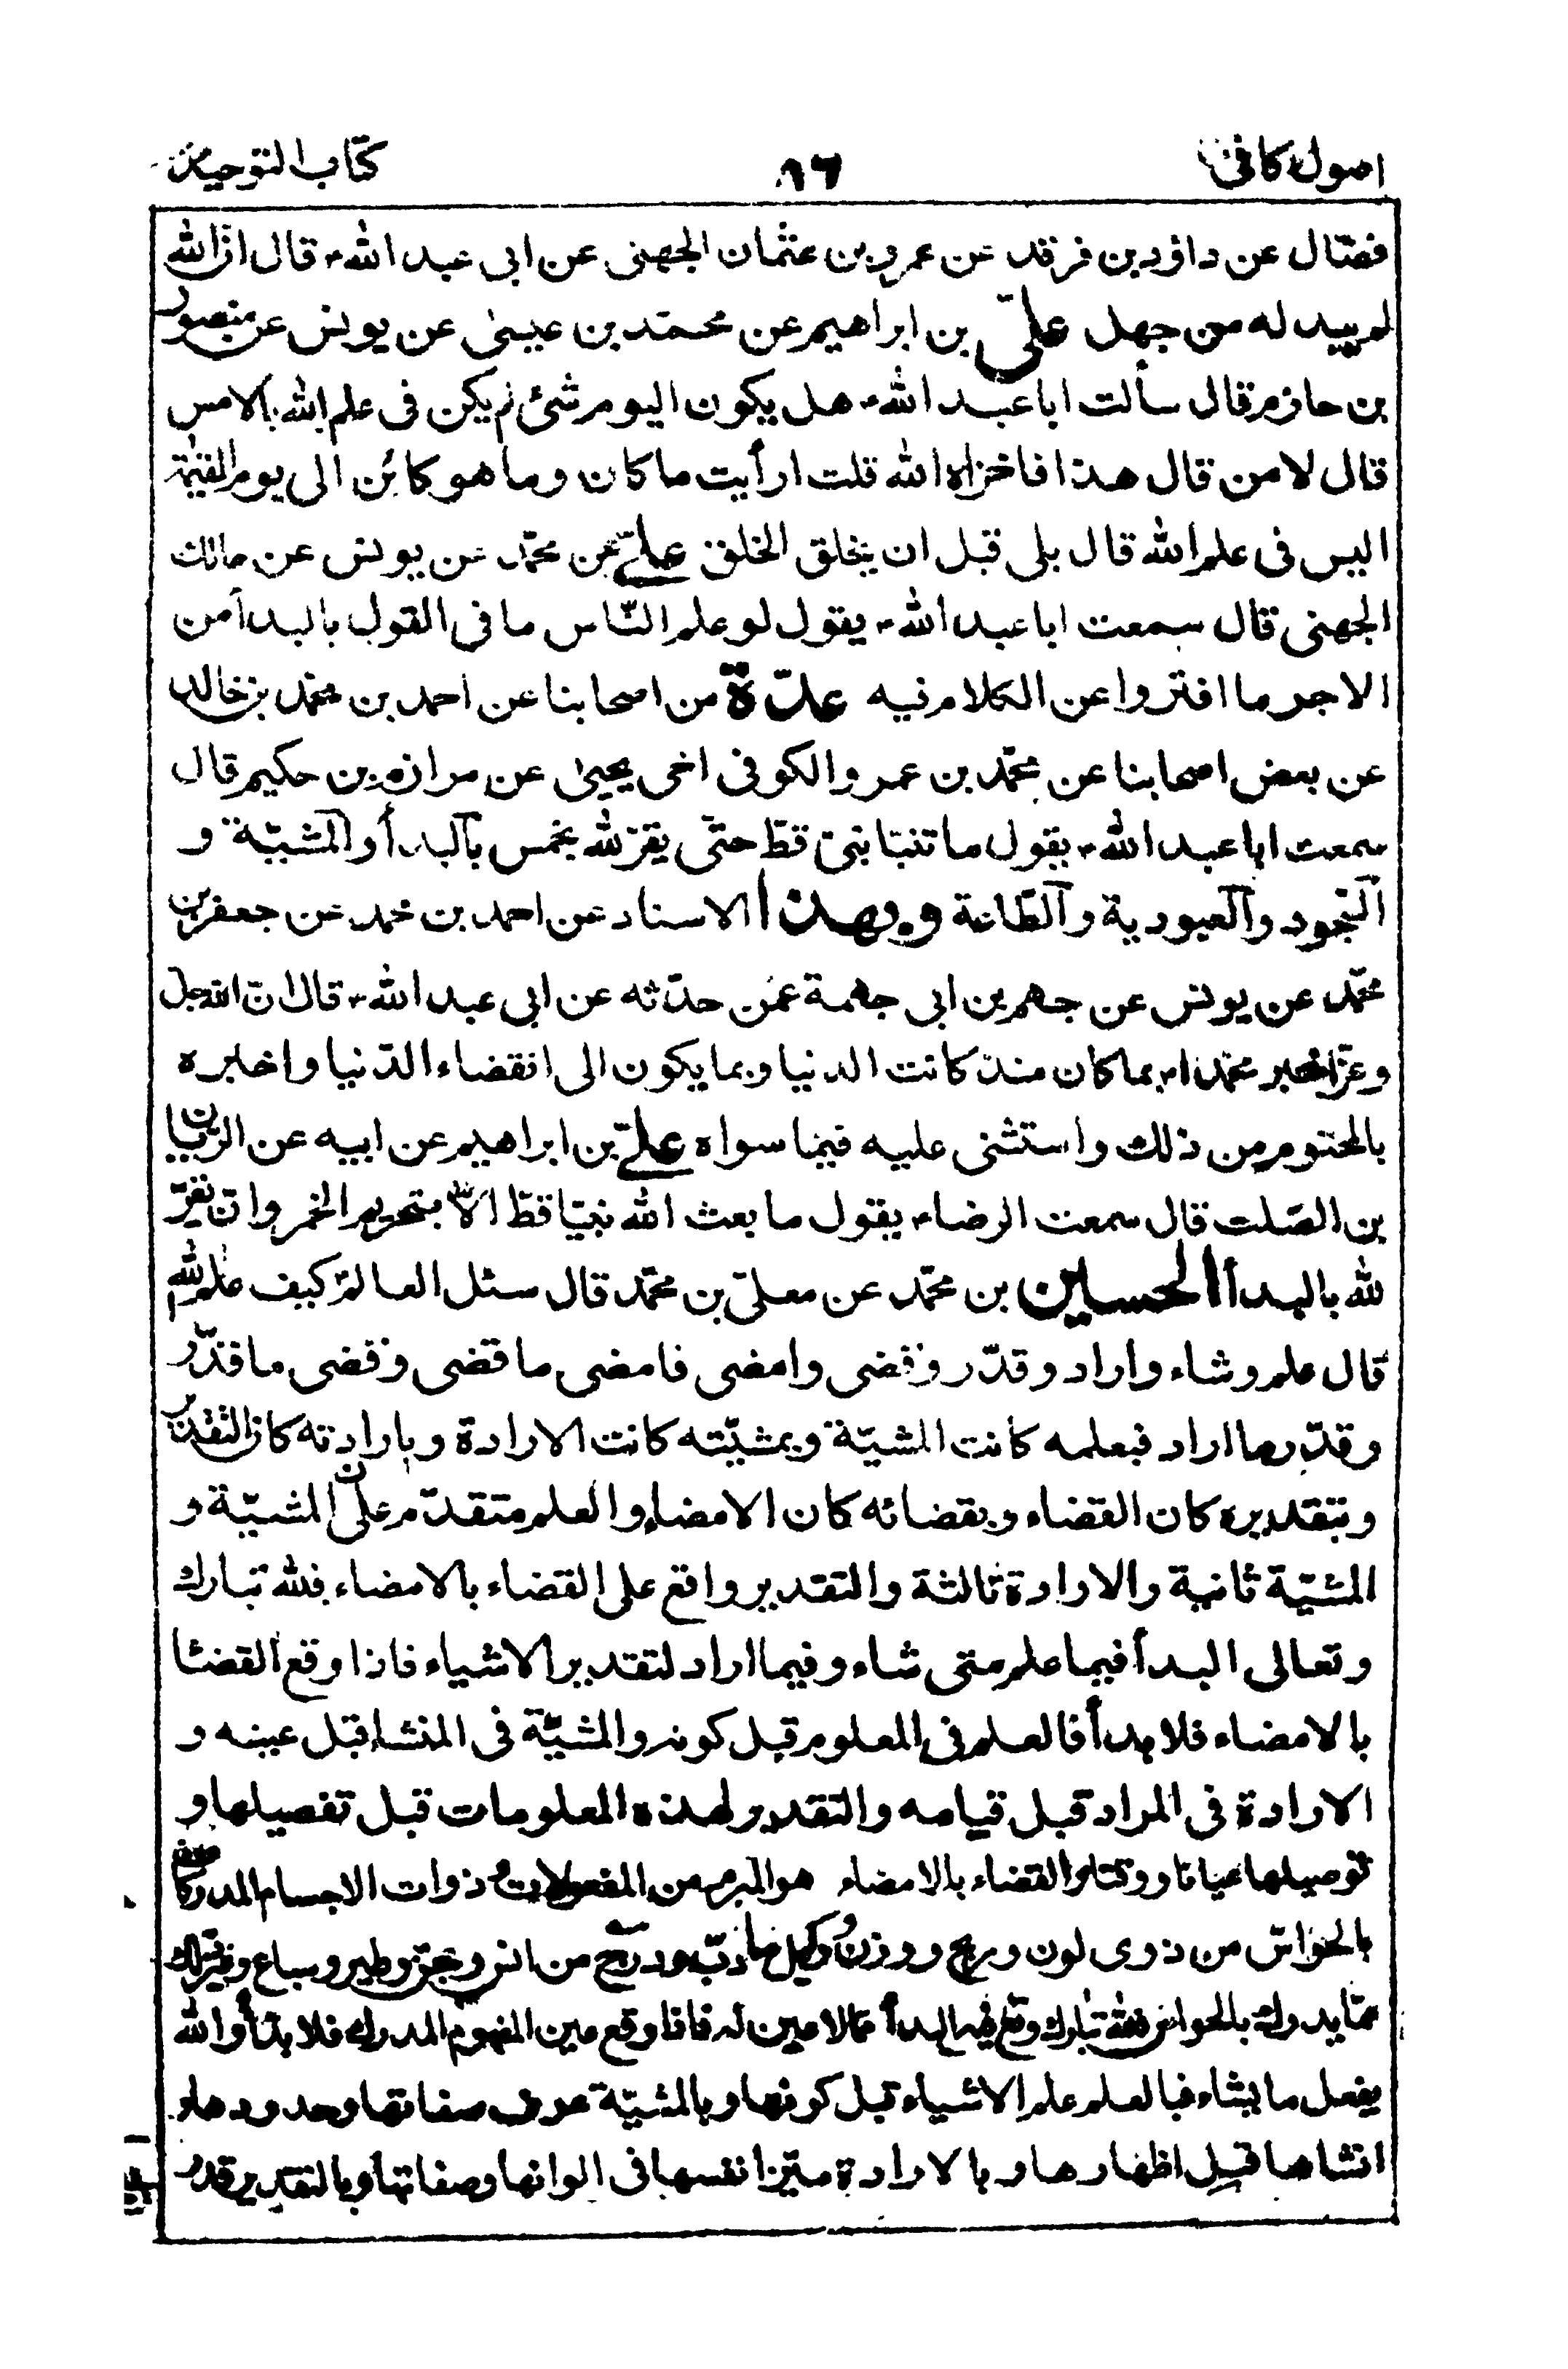 اصول كافى
٨٦
كتاب التوحيد
فضّال عن داؤد بن فرقد عن عمرو بن عثمان الجهنى عن ابى عبد الله؏ قال انّ الله
لم يبد له من جهل علىّ بن ابراهيم عن محمّد بن عيسىٰ عن يونس عن منصور
بن حازم قال سألت ابا عبد الله؏ هل يكون اليوم شئ لم يكن فى علم الله بالامس
قال لا من قال هذا فاخزاه الله قلت ارأيت ما كان وما هو كائن الى يوم القيٰمة
اليس فى علم الله قال بلى قبل ان يخلق الخلق علىّ عن محمّد عن يونس عن مالك
الجهنى قال سمعت ابا عبد الله؏ يقول لو علم النّاس ما فى القول بالبدأ من
الاجر ما افتروا عن الكلام فيه عدّة من اصحابنا عن احمد بن محمّد بن خالد
عن بعض اصحابنا عن محمّد بن عمرو الكوفى اخى يحيىٰ عن مرازم بن حكيم قال
سمعت ابا عبد الله؏ يقول ما تنبّا نبىّ قطّ حتّى يقرّ لله بخمس بالبدأ والمشيّة و
السّجود والعبودية والطّاعة وبهذا الاسناد عن احمد بن محمد عن جعفر بن
محمّد عن يونس عن جهم بن ابى جهمة عمّن حدّثه عن ابى عبد الله؏ قال انّ الله جلّ
وعزّ اخبر محمّدا؏ بما كان منذ كانت الدنيا وبما يكون الى انقضاء الدّنيا واخبره
بالمحتوم من ذلك واستثنى عليه فيما سواه علىّ بن ابراهيم عن ابيه عن الريّان
بن الصّلت قال سمعت الرضا؏ يقول ما بعث الله نبيّا قطّ الّا بتحريم الخمر وان يقرّ
لله بالبدأ الحسين بن محمّد عن معلىّ بن محمّد قال سئل العالم؏ كيف علم الله
قال علم وشاء واراد وقدّر وقضى وامضى فامضى ما قضى وقضى ما قدّر
وقدّر ما اراد فبعلمه كانت المشيّة وبمشيّته كانت الارادة وبارادته كان التّقدير
وبتقديره كان القضاء وبقضائه كان الامضاء والعلم متقدّم على المشيّة و
المشيّة ثانية والارادة ثالثة والتقدير واقع على القضاء بالامضاء فلله تبارك
وتعالى البدأ فيما علم متى شاء وفيما اراد لتقدير الاشياء فاذا وقع القضا
بالامضاء فلا بدأ فالعلم فى المعلوم قبل كونه والمشيّة فى المنشا قبل عينه و
الارادة فى المراد قبل قيامه والتقدير لهذه المعلومات قبل تفصيلها و
توصيلها عيانا ووقتا والقضاء بالامضاء هو المبرم من المفعولات ذوات الاجسام المدركات
بالحواسّ من ذوى لون وريح ووزن وكيل وما دبّ ودرج من انس وجنّ وطير وسباع وغير ذلك
ممّا يدرك بالحواس فلله تبارك وتع فيه البدأ ممّا لا عين له فاذا وقع عين المفهوم المدرك فلا بدأ والله
يفعل ما يشاء فبالعلم علم الاشياء قبل كونها وبالمشيّة عرف صفاتها وحدودها و
انشاها قبل اظهارها وبالارادة ميّز انفسها فى الوانها وصفاتها وبالتقدير قدر